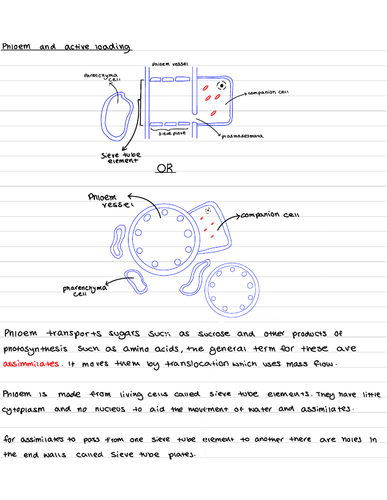 Phloem and active loading
phloem vessel
parenchyma
cell
companion cell
plasmodesmata
sieve plate
Sieve tube
element
OR
Phloem
vessel
companion cell
pharenchyma
cell
Phloem transports sugars such as sucrose and other products of
photosynthesis such as amino acids, the general term for these are
assimmilates. It moves them by translocation which uses mass flow.
Phloem is made from living cells called sieve tube elements. They have little
cytoplasm and no nucleus to aid the movement of water and assimilates.
for assimilates to pass from one sieve tube element to another there are holes in
the end walls called sieve tube plates.